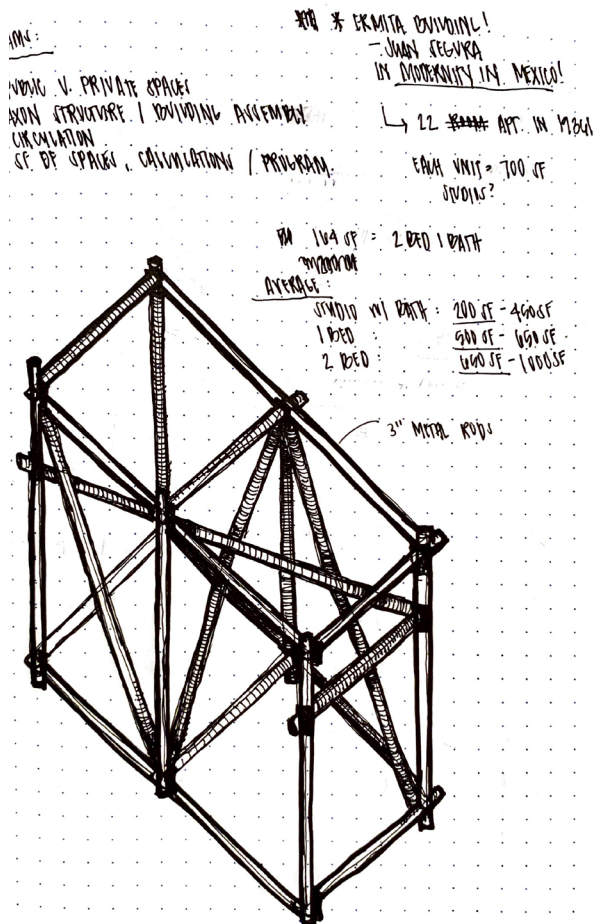 AMS:
PUBLIC V. PRIVATE SPACES
AXON STRUCTURE / BUILDING ASSEMBLY
CIRCULATION
SF OF SPACES, CALCULATIONS / PROGRAM.
* ERMITA BUILDING!
- JUAN SEGURA
IN MODERNITY IN MEXICO!
↳ 22 ROOM APT. IN 1930S
EACH UNIT = 700 SF
STUDIOS?
164 SF = 2 BED 1 BATH
AVERAGE:
STUDIO W/ BATH: 200 SF - 450 SF
1 BED : 500 SF - 650 SF
2 BED : 650 SF - 1000 SF
3" METAL RODS